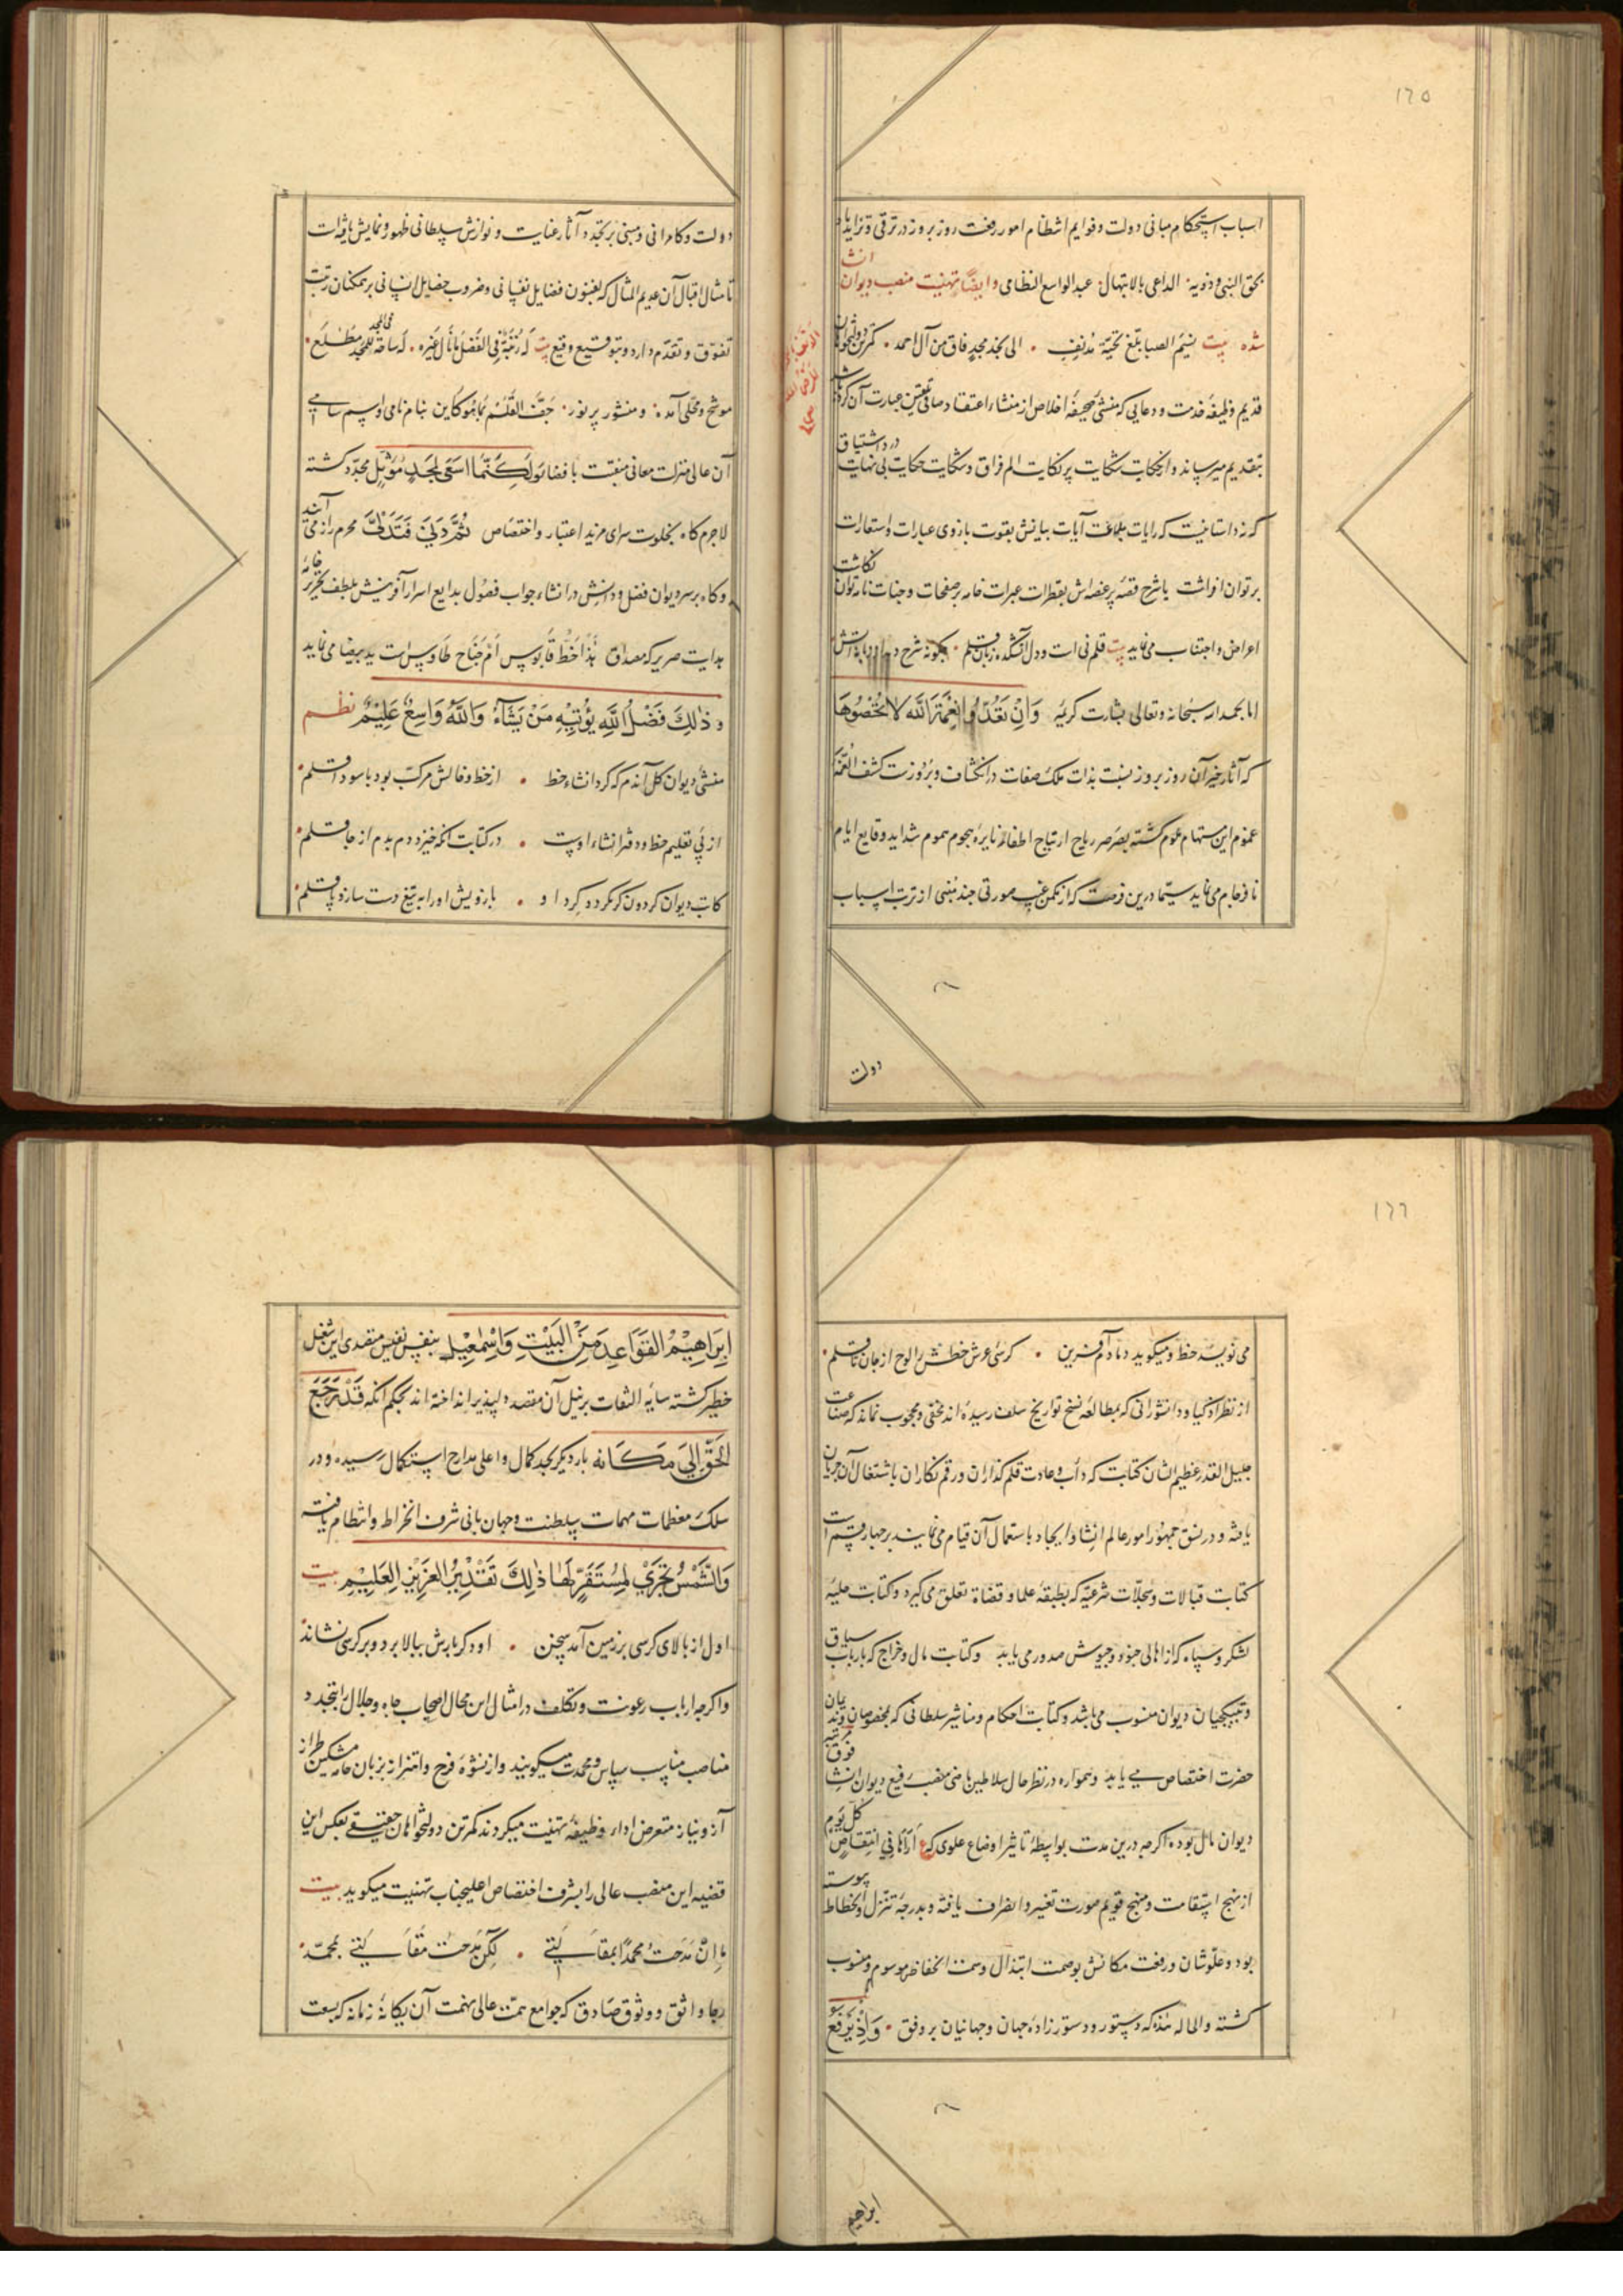 ۱۲۵
اسباب استحکام مبانی دولت وقوایم انتظام امور رفعت روز بروز در ترقی وتزاید باد
بحق النبی وذویه الداعی بالابتهال عبدالواسع النظامی وایضًا تهنیت منصب دیوان انشا
شده بیت نسیم الصبا بلّغ تحیّة مدنف الی نجد مجدٍ فاق من آل احمد کمترین دولتخواهان
قدیم وظیفهٔ خدمت ودعایی که منشی صحیفهٔ اخلاص از منشاء اعتقاد صافی عبارت آن کرده
بتقدیم میرساند وانحکایات شکایت پر نکایت الم فراق وشکایت حکایت بی نهایت درد اشتیاق
که نه داستانیست که رایات بلاغت آیات بیانش بقوت بازوی عبارات واستعارت
برتوان افراشت یا شرح قصه پر غصه اش بقطرات عبرات خامه بر صفحات وجنات نامه توان نکاشت
اعراض واجتناب می نماید بیت قلم نی است ودل آتشکده زبان قلم چکونه شرح دهد
اما بحمد الله سبحانه وتعالی بشارت کریمه وَاِنْ تَعُدُّوا نِعْمَةَ اللّٰه لا تُحْصُوهَا
که آثار خیر آن روز بروز بنسبت بذات ملک صفات در انکشاف وبروزست کشف الغمّهٔ
غموم این مستهام غموم کشته بصرصر ریاح ارتیاح اطفاء نایرهٔ هجوم هموم شداید وقایع ایام
نافرجام می نماید سیّما درین فرصت که از مکمن غیب صورتی چند مبنی از ترتب اسباب
دولت
دولت وکامرانی ومبنی بر تجدد آثار عنایت ونوازش سلطانی ظهور ونمایش یافته است
تا مثال اقبال آن عدیم المثال که بفنون فضایل نفسانی وضروب خصایل انسانی بر ممکنان رتبت
تفوّق وتقدّم دارد وبتوقیع وقیع بیت لَه رُتبَةٌ فِی الفَضلِ مَا نَالَ غَیره لَه ساحَة للمجد فی المجد مَطلَع
موشح ومحلّی آمده ومنشور پر نور جَفَّ القَلَم بِمَا هُوَ کَاین بنام نامی واسم سامی
آن عالی منزلت معانی منقبت با قضا وَلٰکِنَّمَا اَسعَی لِمَجدٍ مُؤَثَّلٍ مجدّد کشته
لاجرم کاه بخلوت سرای مزید اعتبار واختصاص ثُمَّ دَنَیٰ فَتَدَلّیٰ محرم راز می آید
وکاه بر سر دیوان فضل ودانش در انشاء جواب فصول بدایع اسرار آفرینش بلطف تحریر خامهٔ
بدایت صریر که مصداق هٰذَا خَطُّ قَابُوسٍ اَم جَنَاح طَاوُسٍ است ید بیضا می نماید
و ذٰلِكَ فَضْلُ اللّٰهِ يُؤْتِيهِ مَنْ يَشَآءُ وَاللّٰهُ وَاسِعٌ عَلِيْمٌ نظم
منشی دیوان کل آندم که کرد انشاء خط از خط وخالش مرکب بود با سودا قلم
از پی تعلیم خط ودفتر انشاء اوست در کتابت آنکه خیزد دم بدم از جا قلم
کاتب دیوان کردون کر نکردد کرد او بازویش او را به تیغ دست سازد پا قلم
۱۲۶
می نویسد خط ومیکوید دمادم آفرین کرسی عرش خطش را لوح از جان تا قلم
از نظر اذکیا ودانشورانی که بمطالعهٔ نسخ تواریخ سلف رسیده اند مخفی ومحجوب نماند که صناعت
جلیل القدر عظیم الشان کتابت که دأب وعادت قلم کذاران ورقم نکاران باشتغال آن جریان
یافته ودر نسق جمهور امور عالم انشا وایجاد باستعمال آن قیام می نمایند بر چهار قسم است
کتابت قبالات وسجلّات شرعیّه که بطبقهٔ علما وقضاة تعلق می کیرد وکتابت حلیهٔ
لشکر وسپاه که از اهالی جنود وجیوش صدور می یابد وکتابت مال وخراج که بارباب سیاق
وتبیکچیان دیوان منسوب می باشد وکتابت احکام ومناشیر سلطانی که بمخصوصان
حضرت اختصاص می یابد وهمواره در نظر حال سلاطین ماضی منصب رفیع دیوان انشا فوق مرتبه
دیوان مال بوده اکرچه درین مدت بواسطهٔ تاثیر اوضاع علوی که ع اَرَاهَا فِی انتِقَاصٍ کل یوم
از نهج استقامت ومنهج قویم صورت تغییر وانصراف یافته وبدرجهٔ تنزّل وانحطاط پیوسته
بود وعلوّشان ورفعت مکانش بوصمت ابتذال وسمت انخفاظ موسوم ومنسوب
کشته والحاله هذه که دستور ودستور زادهٔ جهان وجهانیان بر وفق وَاِذْ يَرْفَعُ
ابراهیم
اِبرَاهِيْمُ القَوَاعِدَ مِنَ الْبَيْتِ وَاِسْمٰعِيْلُ بنفس نفیس متصدی این شغل
خطیر کشته سایهٔ التفات بر نیل آن مقصد دلپذیر انداخته اند بحکم آنکه قَدْ رَجَعَ
الحَقُّ اِلٰی مَکَانه بار دیکر بحد کمال واعلی مدارج استکمال رسیده ودر
سلک معظمات مهمات سلطنت وجهان بانی شرف انخراط وانتظام یافت
وَالشَّمْسُ تَجْرِيْ لِمُسْتَقَرٍّ لَهَا ذٰلِكَ تَقْدِيْرُ العَزِيْزِ العَلِيْمِ بیت
اول از بالای کرسی بر زمین آمد سخن او دکر بارش ببالا برد وبر کرسی نشاند
واکرچه ارباب رعونت وتکلف در امثال این محال اصحاب جاه وجلال را بتجدد
مناصب مناسب سپاس ومحمدت میکویند واز نشوهٔ فرح واهتزاز بزبان خامه مشکین طراز
آز ونیاز متعرض اداء وظیفهٔ تهنیت میکردند کمترین دولتخواهان حقیقی بعکس این
قضیه این منصب عالی را بشرف اختصاص اعلیجناب تهنیت میکوید بیت
مَا اِنْ مَدَحتُ مُحمَّدًا بمَقَالَتِی لٰکِن مَدَحتُ مَقَالَتِی بمُحمَّد
رجاء واثق ووثوق صادق که جوامع همّت عالی نهمت آن یکانهٔ زمانه که بسعت